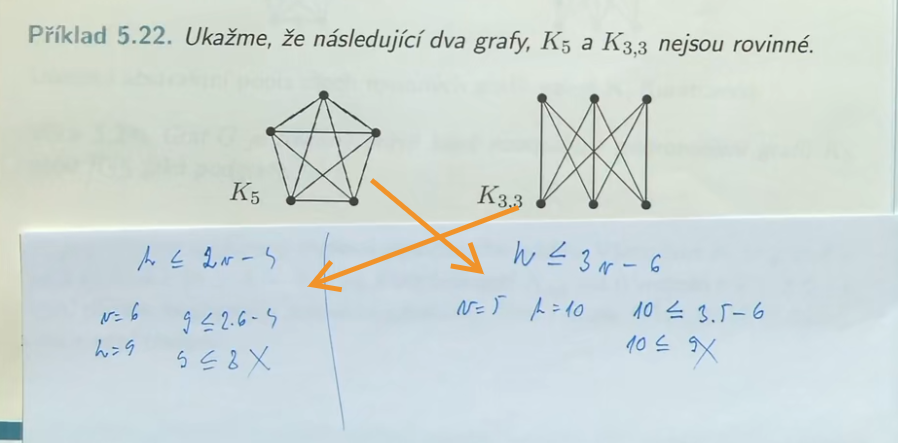 Příklad 5.22. Ukažme, že následující dva grafy, K₅ a K₃,₃ nejsou rovinné.
K₅
K₃,₃
h ≤ 2v - 4
v=6 9 ≤ 2.6-4
h=9 9 ≤ 8 X
h ≤ 3v - 6
v=5 h=10 10 ≤ 3.5-6
10 ≤ 9X